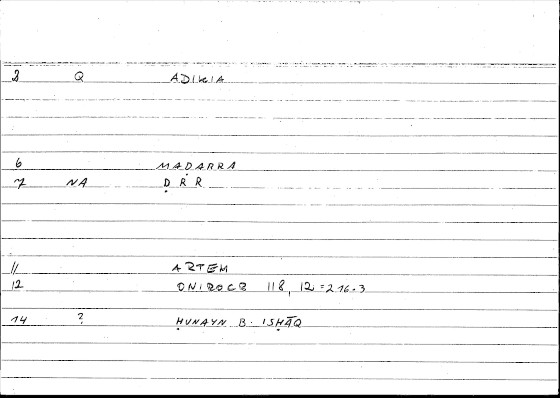 3 Q ADIKIA
6 MAḌARRA
7 NA Ḍ R R
11 ARTEM
12 ONIROCR 118, 12 = 216.3
14 ? ḤUNAYN B. ISḤĀQ